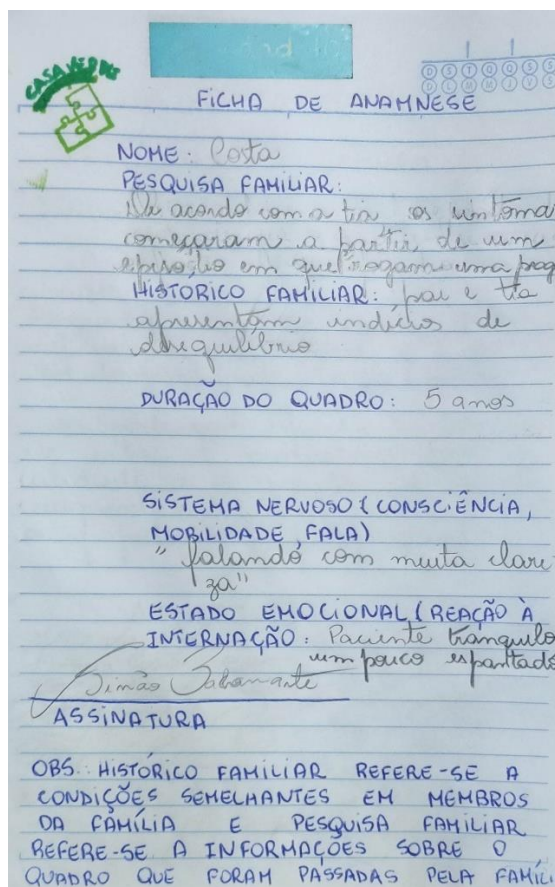 CASA VERDE
D S T Q Q S S
D L M M J V S
FICHA DE ANAMNESE
NOME: Costa
PESQUISA FAMILIAR:
De acordo com a tia os sintoma
começaram a partir de um
episódio em que rogam uma prag
HISTÓRICO FAMILIAR: pai e tia
apresentam indícios de
desequilíbrio
DURAÇÃO DO QUADRO: 5 anos
SISTEMA NERVOSO (CONSCIÊNCIA,
MOBILIDADE, FALA)
" falando com muita clare
za"
ESTADO EMOCIONAL (REAÇÃO À
INTERNAÇÃO: Paciente tranquilo
um pouco espantado
Simão Bacamarte
ASSINATURA
OBS.: HISTÓRICO FAMILIAR REFERE-SE A
CONDIÇÕES SEMELHANTES EM MEMBROS
DA FAMÍLIA E PESQUISA FAMILIAR
REFERE-SE A INFORMAÇÕES SOBRE O
QUADRO QUE FORAM PASSADAS PELA FAMÍLI